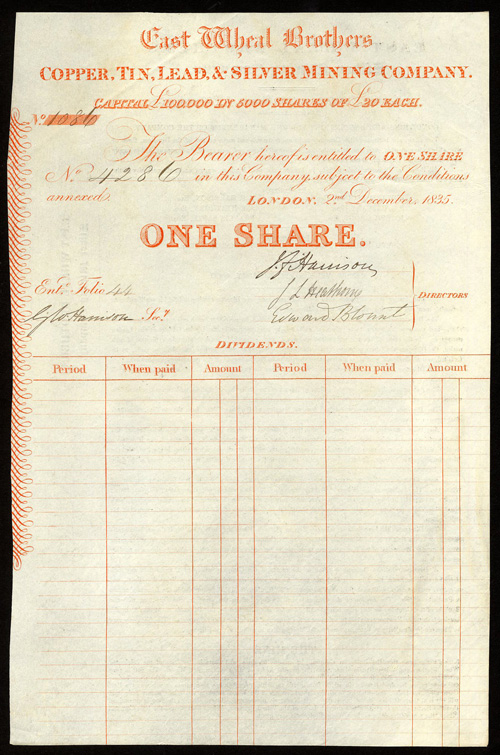 East Wheal Brothers
COPPER, TIN, LEAD, & SILVER MINING COMPANY.
CAPITAL £100,000 IN 5000 SHARES OF £20 EACH.
No. 1086
The Bearer hereof is entitled to ONE SHARE
No. 4286 in this Company, subject to the Conditions
annexed. LONDON. 2nd December, 1835.
ONE SHARE.
J. J. Harrison
Entd. Folio 44
DIRECTORS
Harrison Secy.
Edward Blount
DIVIDENDS.
Period When paid Amount Period When paid Amount